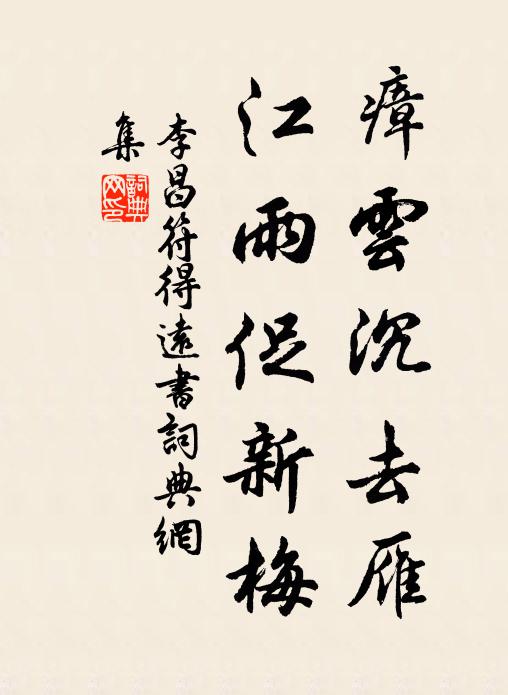 瘴雲沉去雁
江雨促新梅
李昌符得遠書詞典網
集
詞典網印